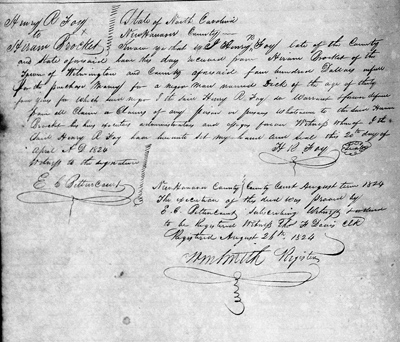 Henry R Foy
to
Hiram Brocket
State of North Carolina
New Hanover County
Know ye that I Henry R Foy late of the County
and State aforesaid have this day received from Hiram Brocket of the
Town of Wilmington and County aforesaid four hundred Dollars in full
for the purchase Money for a negro Man named of the age of thirty
five years for which said negro I the said Henry R Foy do Warrant & forever defend
from all Claim or Claims of any person or persons Whatsoever to the said Hiram
Brocket his heirs executors administrators and assigns forever Witness whereof I the
said Henry R Foy have hereunto set my hand and seal this 20th day of
April A.D. 1824
H. R. Foy (Seal)
Witness to the signature
E. C. Bettencourt
New Hanover County County Court August term 1824
The execution of this deed was proved by
E. C. Bettencourt Subscribing Witness & ordered
to be Registered Witness F Davis Clk
Registered August 26th 1824
Wm Smith Register